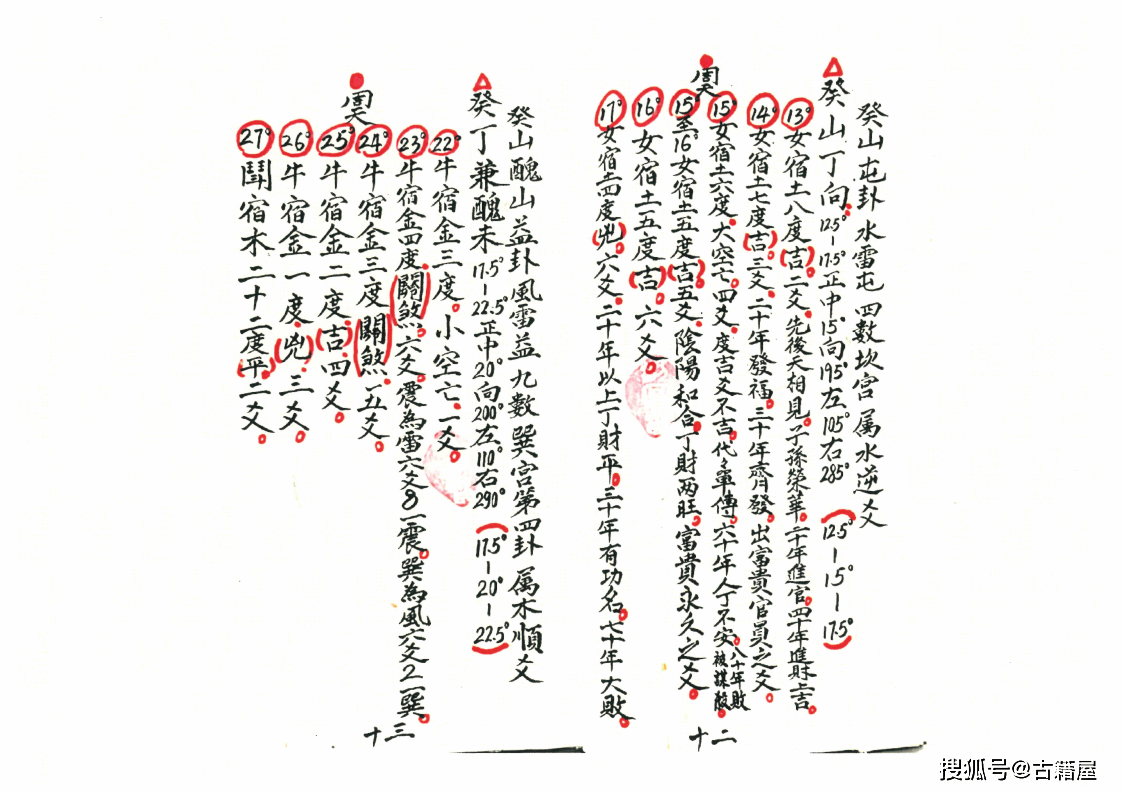 癸山屯卦水雷屯四數坎宮属水逆爻
癸山丁向。12.5°-17.5°正中15°向195°左105°右285° (12.5°-15°-17.5°)
13°女宿土八度(吉)。二爻。先後天相見。子孫榮華。二十年進官。四十年進財上吉。
周天
14°女宿土七度(吉)。三爻。二十年發福。三十年齊發。出富貴官員之爻。
15°女宿土六度。大空亡。四爻。度吉爻不吉。代々單傳。六十年人丁不安。八十年敗。被謀殺。
15°至16°女宿土五度(吉)。五爻。陰陽和合。丁財两旺。富貴永久之爻。
16°女宿土五度(吉)。六爻。
17°女宿土四度(兇)。六爻。二十年以上丁財平。三十年有功名。七十年大敗。
十二
癸山醜山益卦風雷益九數巽宮第四卦属木順爻
癸丁兼醜未17.5°-22.5°正中20°向200°左110°右290° (17.5°-20°-22.5°)
22°牛宿金三度。小空亡。一爻。
23°牛宿金四度。(關煞)。六爻。震為雷六爻8一震。巽為風六爻2一巽。
周天
24°牛宿金三度(關煞)。五爻。
25°牛宿金二度。(吉)。四爻。
26°牛宿金一度。(兇)。三爻。
27°鬪宿木二十二度(平)。二爻。
十三
搜狐号@古籍屋